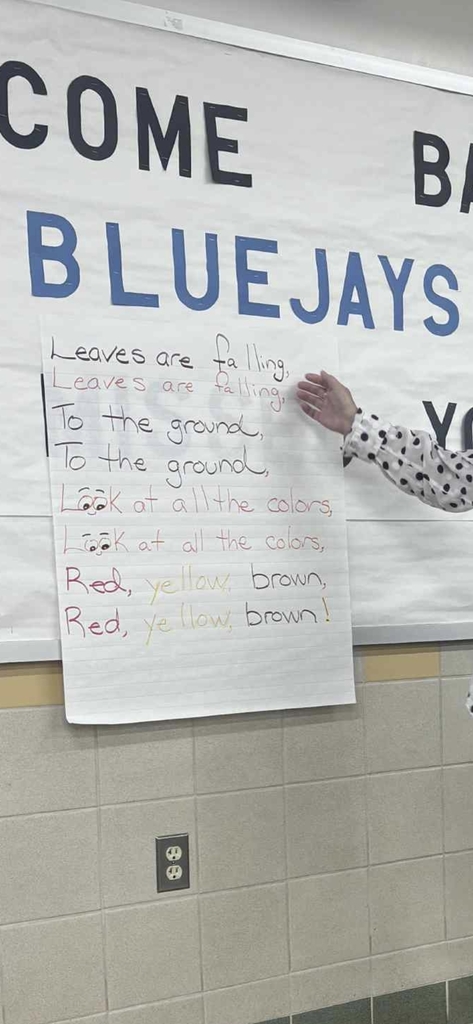 COME BA
BLUEJAYS
Leaves are falling,
Leaves are falling,
To the ground,
To the ground,
YO
Look at all the colors,
Look at all the colors,
Red, yellow, brown,
Red, yellow, brown!